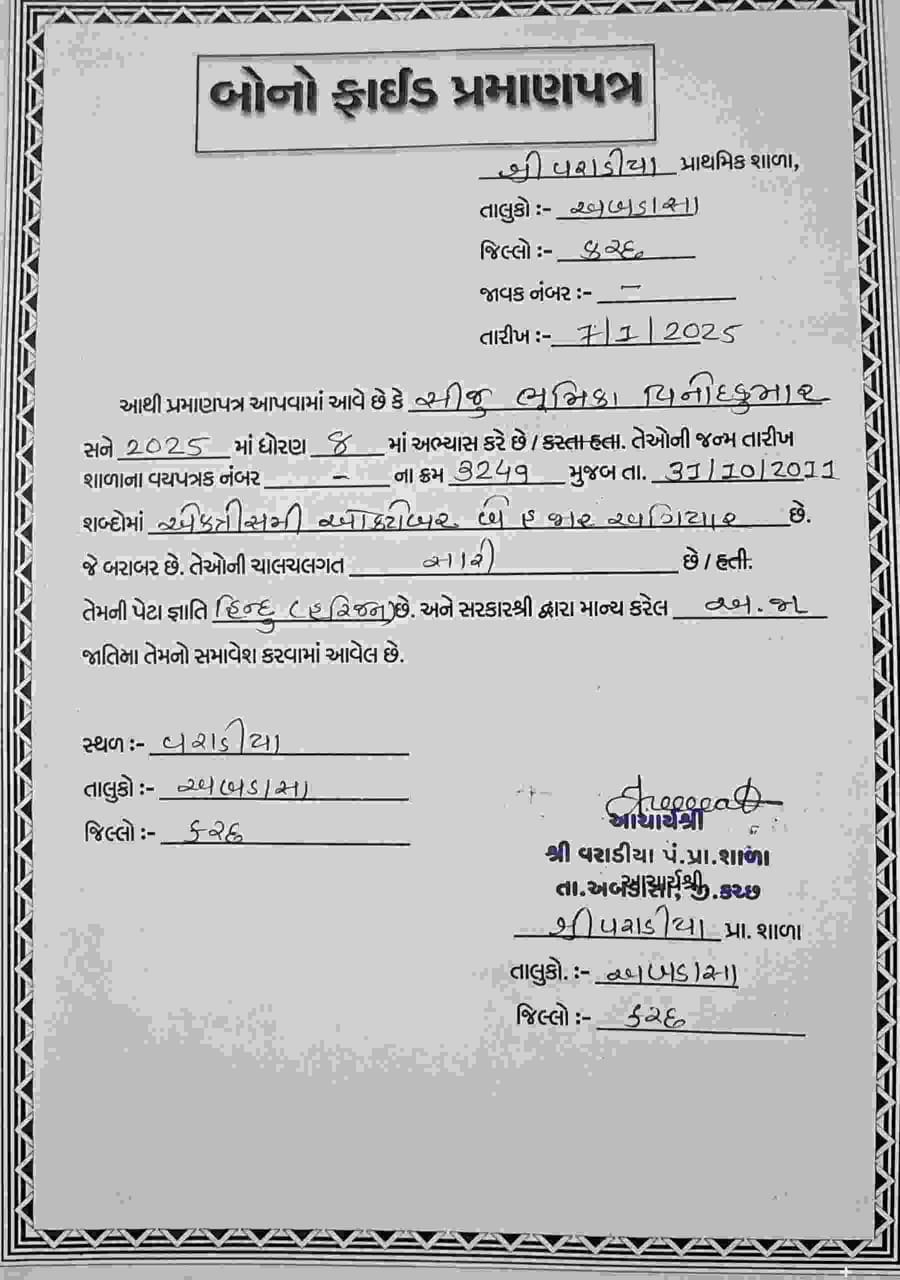 બોનો ફાઈડ પ્રમાણપત્ર
શ્રી વરાડીયા પ્રાથમિક શાળા,
તાલુકો :- અબડાસા
જિલ્લો :- કચ્છ
જાવક નંબર :- –
તારીખ :- 7/1/2025
આથી પ્રમાણપત્ર આપવામાં આવે છે કે સીજુ ભૂમિકા વિનોદકુમાર
સને 2025 માં ધોરણ 8 માં અભ્યાસ કરે છે / કરતા હતા. તેઓની જન્મ તારીખ
શાળાના વયપત્રક નંબર - ના ક્રમ 3249 મુજબ તા. 31/10/2011
શબ્દોમાં એકત્રીસમી ઓક્ટોબર બે હજાર અગિયાર છે.
જે બરાબર છે. તેઓની ચાલચલગત સારી છે / હતી.
તેમની પેટા જ્ઞાતિ હિન્દુ (હરિજન) છે. અને સરકારશ્રી દ્વારા માન્ય કરેલ અ.જા
જાતિમા તેમનો સમાવેશ કરવામાં આવેલ છે.
સ્થળ :- વરાડીયા
તાલુકો :- અબડાસા
જિલ્લો :- કચ્છ
આચાર્યશ્રી
શ્રી વરાડીયા પં.પ્રા.શાળા
તા.અબડાસા, જી.કચ્છ
આચાર્યશ્રી
શ્રી વરાડીયા પ્રા. શાળા
તાલુકો. :- અબડાસા
જિલ્લો :- કચ્છ